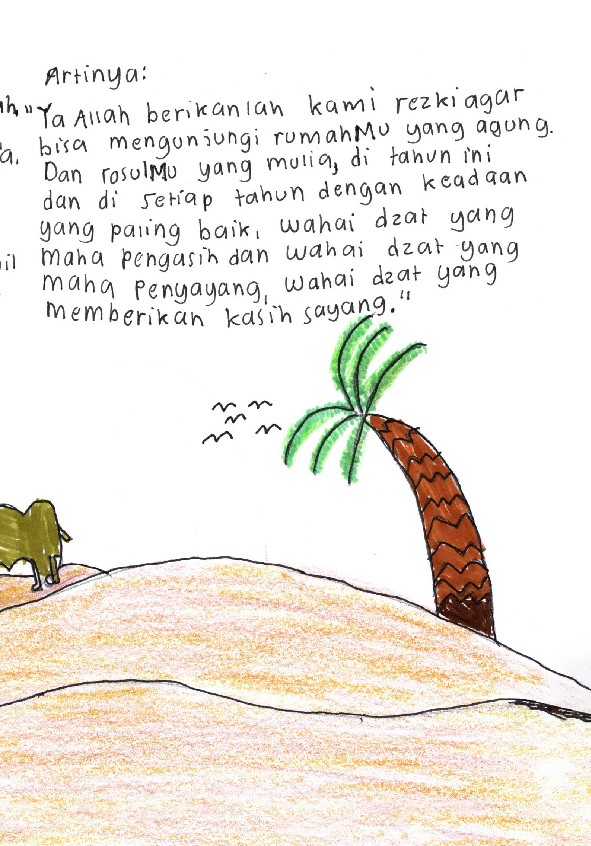 Artinya:
ah, "Ya Allah berikanlah kami rezki agar
a. bisa mengunjungi rumahMu yang agung.
Dan rosulMu yang mulia, di tahun ini
dan di setiap tahun dengan keadaan
yang paling baik, wahai dzat yang
il maha pengasih dan wahai dzat yang
maha penyayang, wahai dzat yang
memberikan kasih sayang."